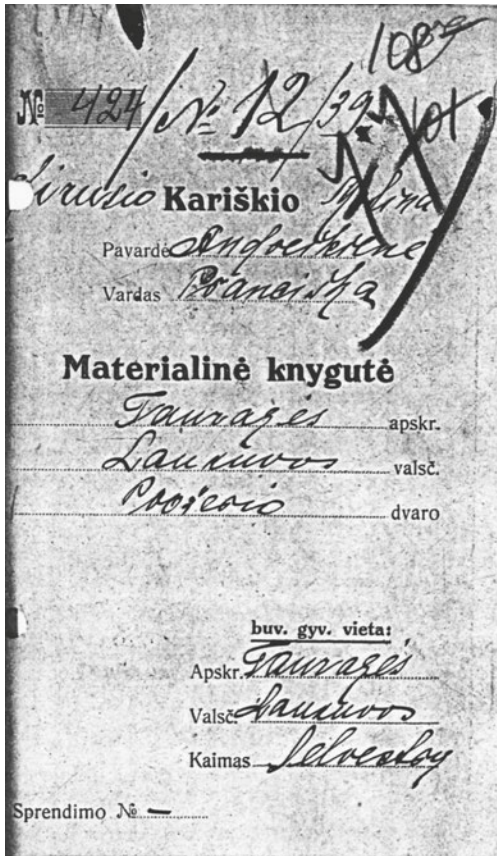 108
№ 424/№ 12/39
Mirusio Kariškio
Pavardė
Vardas Pranciška
Materialinė knygutė
Tauragės apskr.
Laukuvos valsč.
Požerio dvaro
buv. gyv. vieta:
Apskr. Tauragės
Valsč. Laukuvos
Kaimas
Sprendimo № —